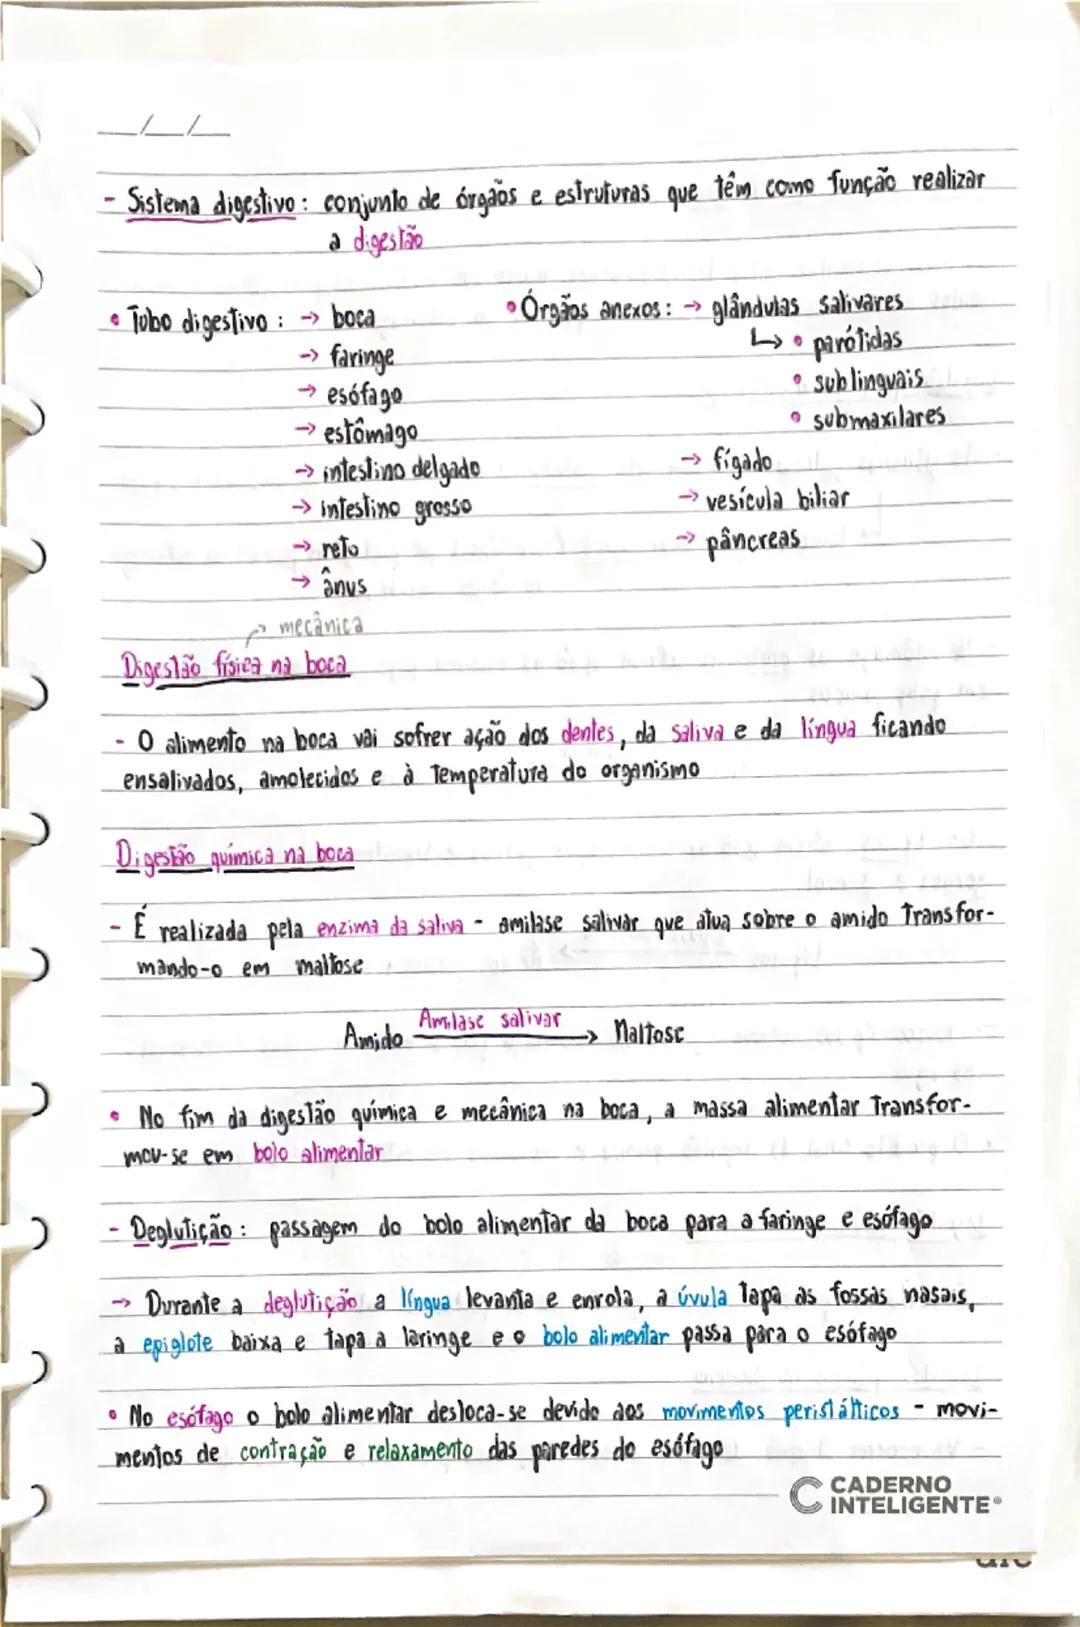 __/__/__
- Sistema digestivo: conjunto de órgãos e estruturas que têm como função realizar
a digestão
• Tubo digestivo: → boca
→ faringe
→ esófago
→ estômago
→ intestino delgado
→ intestino grosso
→ reto
→ ânus
• Órgãos anexos: → glândulas salivares
↳ • parótidas
• sublinguais
• submaxilares
→ fígado
→ vesícula biliar
→ pâncreas
→ mecânica
Digestão física na boca
- O alimento na boca vai sofrer ação dos dentes, da saliva e da língua ficando
ensalivados, amolecidos e à temperatura do organismo
Digestão química na boca
- É realizada pela enzima da saliva - amilase salivar que atua sobre o amido transfor-
mando-o em maltose
Amido Amilase salivar → Maltose
• No fim da digestão química e mecânica na boca, a massa alimentar transfor-
mou-se em bolo alimentar
- Deglutição: passagem do bolo alimentar da boca para a faringe e esófago
→ Durante a deglutição a língua levanta e enrola, a úvula tapa as fossas nasais,
a epiglote baixa e tapa a laringe e o bolo alimentar passa para o esófago
• No esófago o bolo alimentar desloca-se devido aos movimentos peristálticos - movi-
mentos de contração e relaxamento das paredes do esófago
CADERNO
INTELIGENTE®